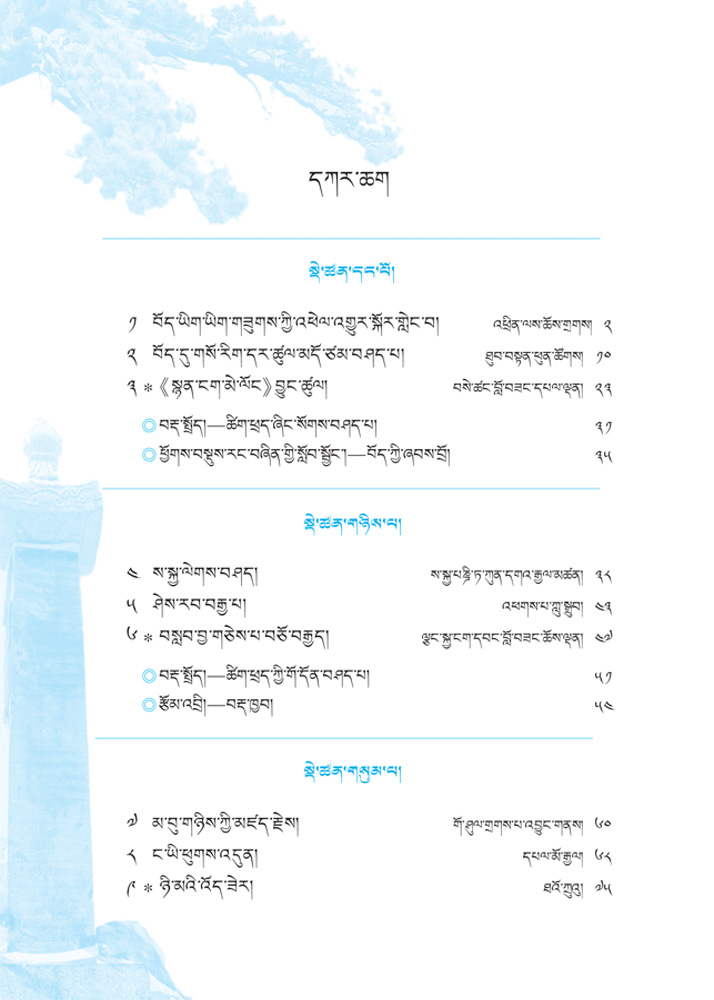 དཀར་ཆག
སྡེ་ཚན་དང་པོ།
༡ བོད་ཡིག་ཡིག་གཟུགས་ཀྱི་འཕེལ་འགྱུར་སྐོར་གླེང་བ། འཕྲིན་ལས་ཆོས་གྲགས། ༢
༢ བོད་དུ་གསོ་རིག་དར་ཚུལ་མདོ་ཙམ་བཤད་པ། ཐུབ་བསྟན་ཕུན་ཚོགས། ༡༠
༣ * 《སྙན་ངག་མེ་ལོང》བྱུང་ཚུལ། བསེ་ཚང་བློ་བཟང་དཔལ་ལྡན། ༢༣
◎ བརྡ་སྤྲོད།—ཚིག་ཕྲད་ཞིང་སོགས་བཤད་པ། ༣༡
◎ ཕྱོགས་བསྡུས་རང་བཞིན་གྱི་སློབ་སྦྱོང་།—བོད་ཀྱི་ཞབས་བྲོ། ༣༥
སྡེ་ཚན་གཉིས་པ།
༤ ས་སྐྱ་ལེགས་བཤད། ས་སྐྱ་པཎྜི་ཏ་ཀུན་དགའ་རྒྱལ་མཚན། ༣༨
༥ ཤེས་རབ་བརྒྱ་པ། འཕགས་པ་ཀླུ་སྒྲུབ། ༤༣
༦ * བསླབ་བྱ་གཅེས་པ་བཅོ་བརྒྱད། ལྕང་སྐྱ་ངག་དབང་བློ་བཟང་ཆོས་ལྡན། ༤༧
◎ བརྡ་སྤྲོད།—ཚིག་ཕྲད་ཀྱི་གོ་དོན་བཤད་པ། ༥༡
◎ རྩོམ་འབྲི།—བརྡ་ཁྱབ། ༥༤
སྡེ་ཚན་གསུམ་པ།
༧ མ་བུ་གཉིས་ཀྱི་མཛད་རྗེས། གོ་ཤུལ་གྲགས་པ་འབྱུང་གནས། ༦༠
༨ ང་ཡི་ཕུགས་འདུན། དཔལ་མོ་རྒྱལ། ༦༨
༩ * ཉི་མའི་འོད་ཟེར། ཐའོ་ཀྲུའུ། ༧༥